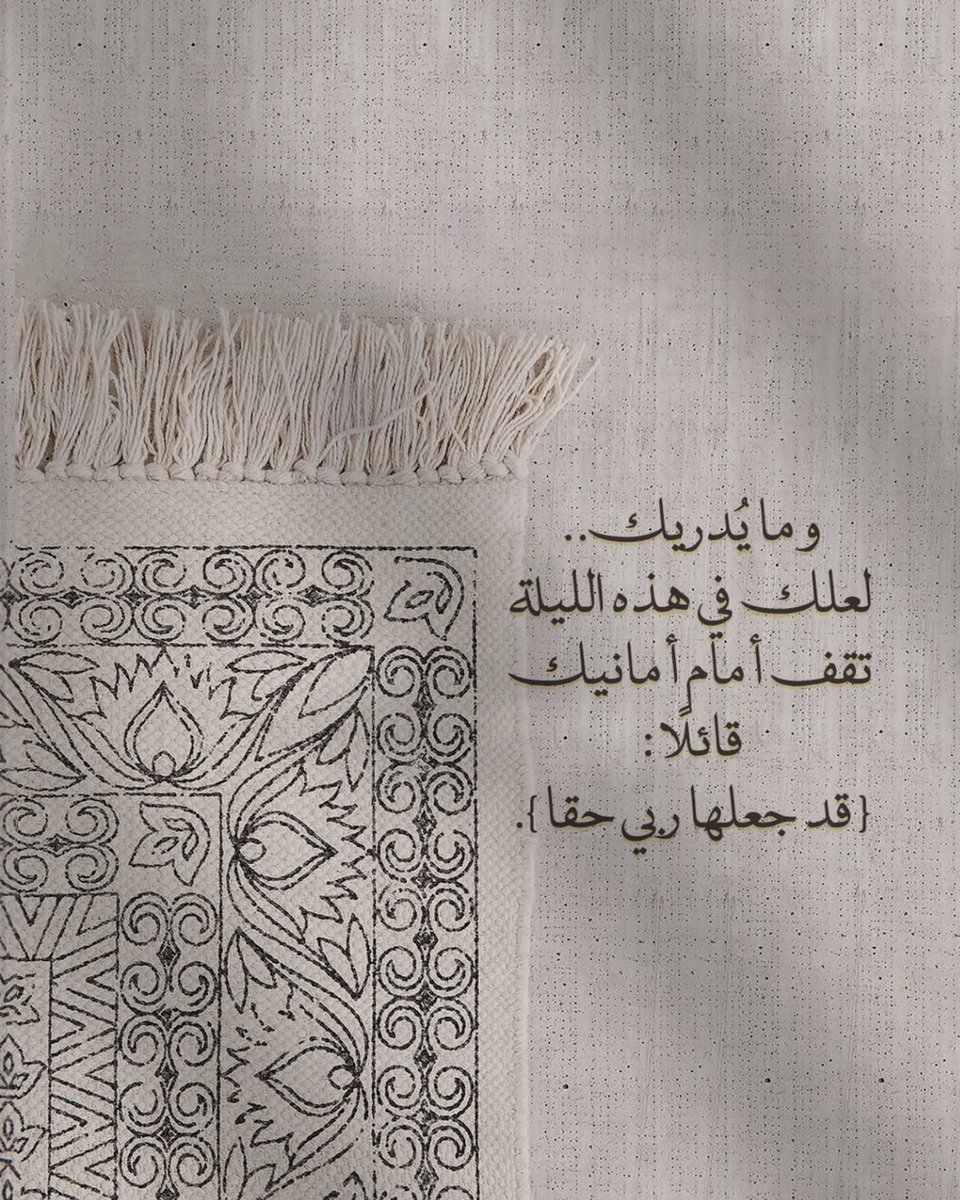 وما يُدريك..
لعلك في هذه الليلة
تقف أمام أمانيك
قائلًا:
{قد جعلها ربي حقا}.